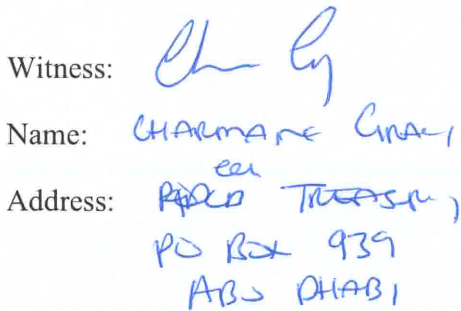 Witness:
Name: CHARMAINE GRAY
Address: TREASURY,
PO BOX 939
ABU DHABI